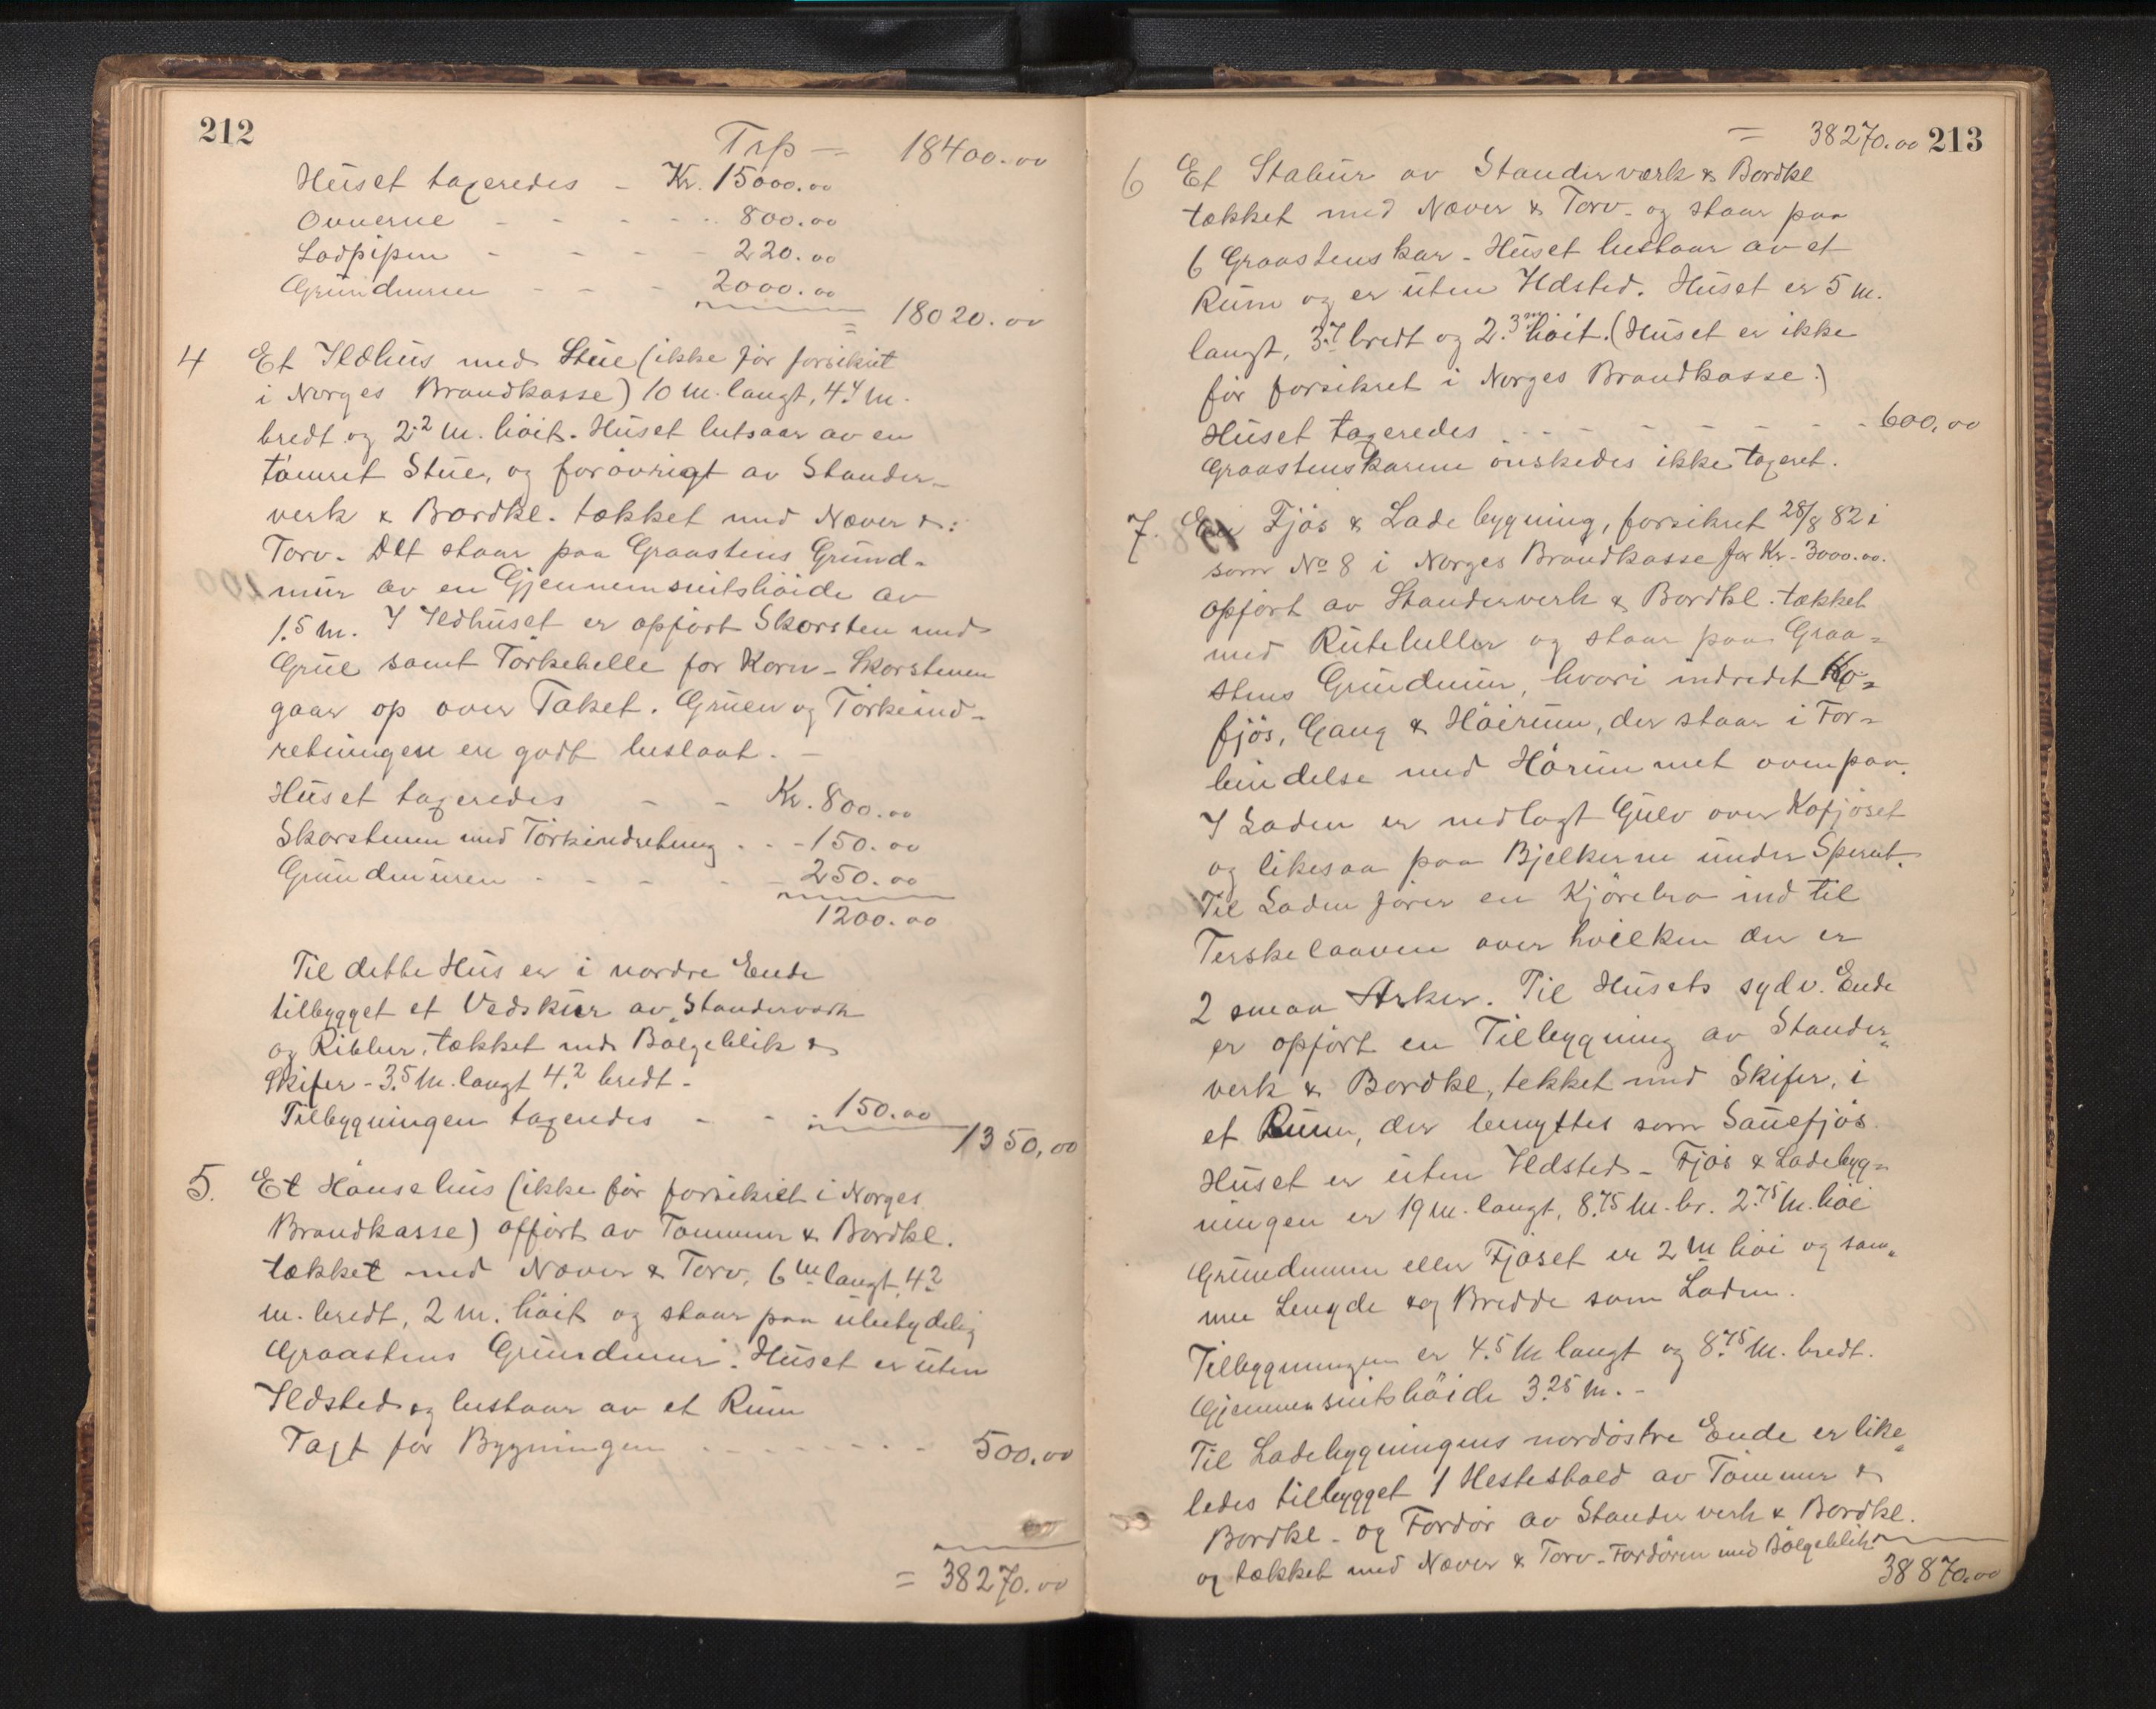 212
Trp = 18400.00
Huset taxeredes - Kr. 15000.00
Ovnerne - - - - - 800.00
Lodpipen - - - - 220.00
Grundmuren - - - 2000.00
= 18020.00
4 Et Ildhus med Stue (ikke før forsikret
i Norges Brandkasse) 10 m. langt, 4.4 m.
bredt og 2.2 m. høit. Huset bestaar av en
tømret Stue, og forøvrigt av Stander-
verk & Bordkl. tækket med Næver &:
Torv. Det staar paa Graastens Grund-
mur av en Gjennemsnitshøide av
1.5 m. I Ildhuset er opført Skorsten med
Grue samt Tørkehelle for Korn - Skorstenen
gaar op over Taket. Gruen og Tørkeind-
retningen er godt beslaat. -
Huset taxeredes - - Kr. 800.00
Skorstenen med Tørkindretning . . - 150.00
Grundmuren - - - - - 250.00
1200.00
Til dette Hus er i nordre Ende
tilbygget et Vedskur av Standerværk
og Ribber, tækket med Bølgeblik &
Skifer - 3.5 m. langt 4.2 bredt -
Tilbygningen taxeredes - - . 150.00
1350,00
5. Et Hønsehus (ikke før forsikret i Norges
Brandkasse) opført av Tømmer & Bordkl.
tækket med Næver & Torv, 6 m langt, 4.2
m. bredt, 2 m. høit og staar paa ubetydelig
Graastens Grundmur. Huset er uten
Ildsted og bestaar av et Rum
Taxt for Bygningen - - - - - - - 500.00
= 38270.00
= 38270.00 213
6 Et Stabur av Standerværk & Bordkl
tækket med Næver & Torv - og staar paa
6 Graastenskar - Huset bestaar av et
Rum og er uten Ildsted. Huset er 5 m.
langt, 3.7 bredt og 2.3 m høit. (Huset er ikke
før forsikret i Norges Brandkasse.)
Huset taxeredes - - - - - - - - 600,00
Graastenskarene ønskedes ikke taxeret.
7. En Fjøs & Lade bygning, forsikret 28/8 82 i
som No 8 i Norges Brandkasse for Kr. 3000.00.
opført av Standerverk & Bordkl. tækket
med Ruteheller og staar paa Graa-
stens Grundmur, hvori indredet Ko-
fjøs, Gang & Høirum, der staar i For-
bindelse med Hørummet ovenpaa.
I Laden er nedlagt Gulv over Kofjøset
og likesaa paa Bjelkerne under Sperut.
Til Laden fører en Kjørebro ind til
Terskelaaven over hvilken der er
2 smaa Arker. Til Husets sydv. Ende
er opført en Tilbygning av Stander-
verk & Bordkl, tekket med Skifer, i
et Rum, der benyttes som Sauefjøs.
Huset er uten Ildsted - Fjøs & Ladebyg-
ningen er 19 m. langt, 8.75 m. br. 2.75 m. høi
Grundmuren eller Fjøset er 2 m høi og sam-
me Lengde og Bredde som Laden.
Tilbygningen er 4.5 m langt og 8.75 m. bredt.
Gjennemsnitshøide 3.25 m. -
Til Ladebygningens nordøstre Ende er like-
ledes tilbygget 1 Hestestald av Tømmer &
Bordkl - og Fordør av Stander verk & Bordkl.
og tækket med Næver & Torv - Fordøren med Bølgeblik
38870.00